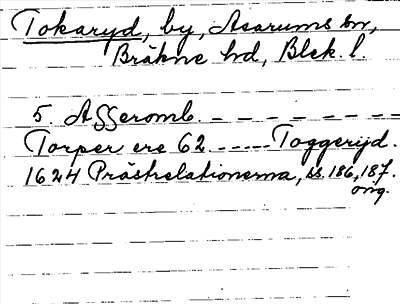 Tokaryd, by, Asarums sn,
Bräkne hd, Blek. l.
5. Asseromb. – – – – – – –
Torper ere 62 ----- Toggerijd.
1624 Prästrelationerna, ss. 186, 187.
orig.